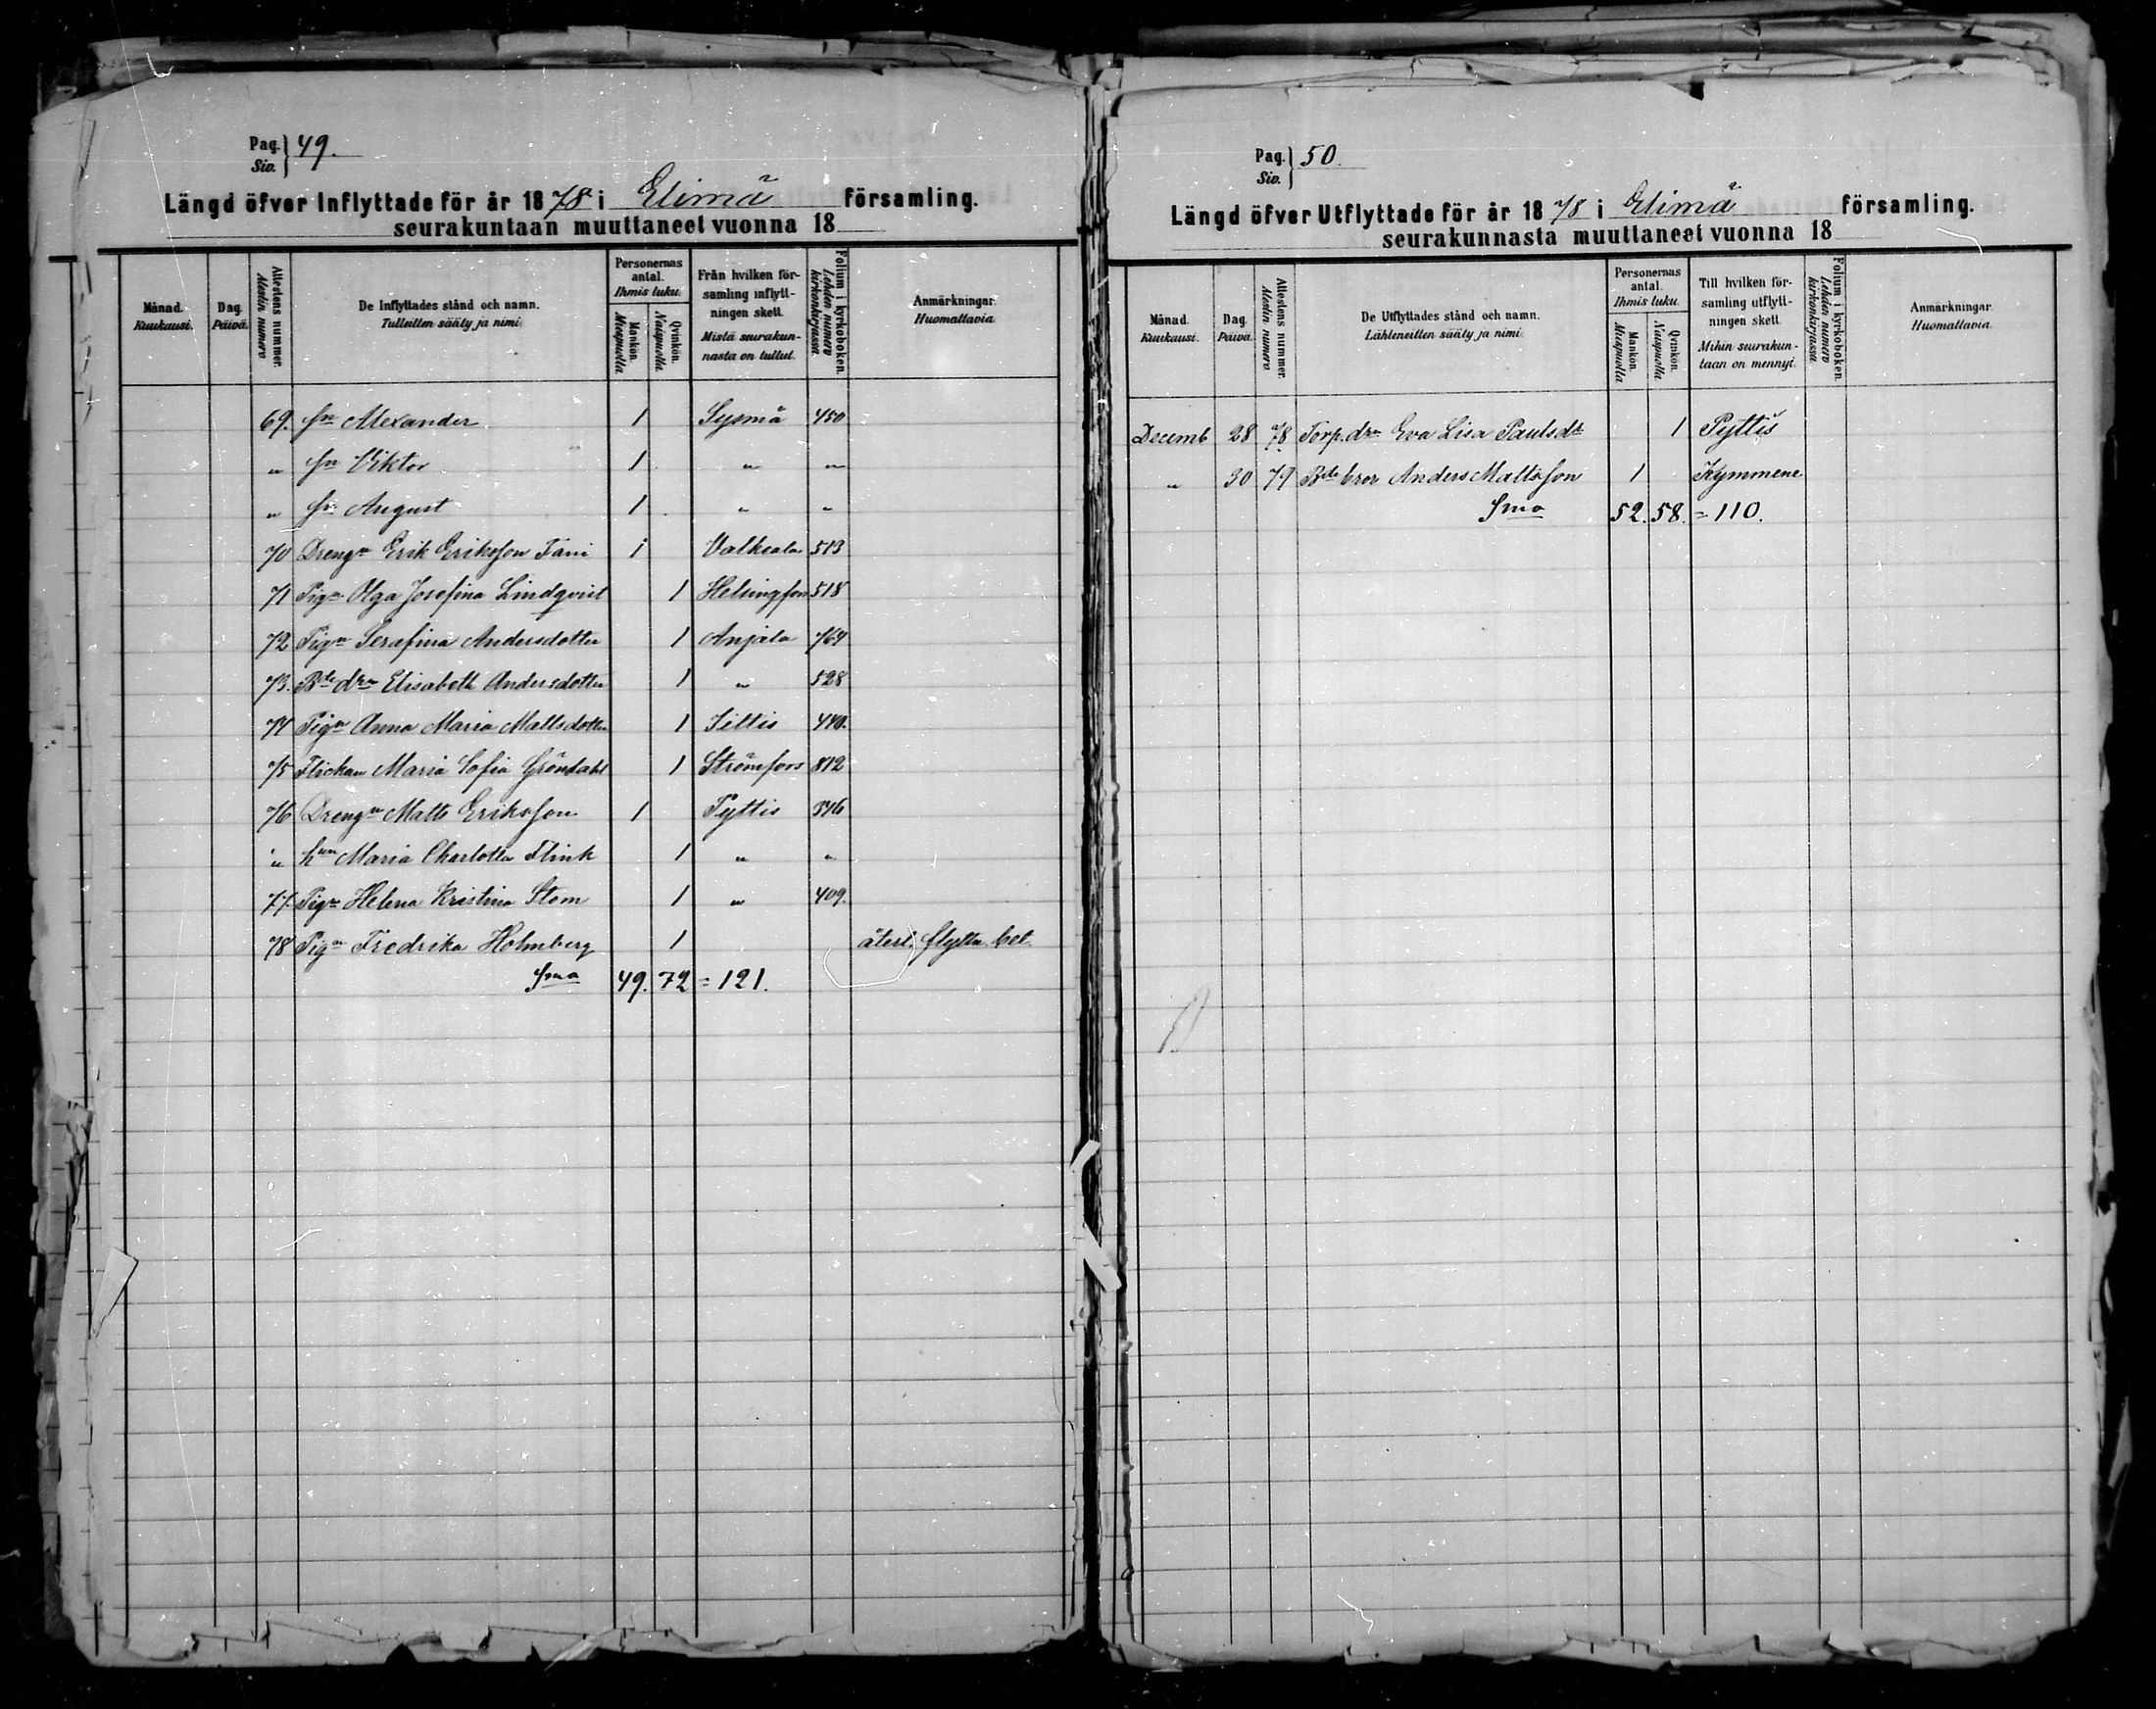 Pag. Siv. } 49.
Längd öfver Inflyttade för år 1878 i Elimä församling.
seurakuntaan muuttaneet vuonna 18
Månad. Kuukausi.
Dag. Päivä.
Attestens nummer. Atestin numero
De Inflyttades stånd och namn. Tulleitten sääty ja nimi.
Personernas antal. Ihmis luku.
Mankön. Miespuolia
Qvinkön. Naispuolia
Från hvilken församling inflyttningen skett. Mistä seurakunnasta on tullut.
Folium i kyrkoboken. Lehden numero kirkonkirjassa
Anmärkningar. Huomattavia.
69. sn Alexander 1 Sysmä 450
" sn Viktor 1 " "
" sn August 1 " "
70 Drengn Erik Eriksson Täni 1 Valkeala 513
71 Pign Olga Josefina Lindqvist 1 Helsingfors 518
72 Pign Serafina Andersdotter 1 Anjala 764
73. Bde drn Elisabeth Andersdotter 1 " 528
74 Pign Anna Maria Mattsdotter 1 Sittis 440.
75 Flickan Maria Sofia Gröndahl 1 Strömfors 812
76 Drengn Matts Eriksson 1 Pyttis 376
" hun Maria Charlotta Flink 1 " "
77. Pign Helena Kristina Stom 1 " 409.
78 Pign Fredrika Holmberg 1 återl. flyttn. bet.
Sma 49. 72 = 121.
Pag. Siv. } 50.
Längd öfver Utflyttade för år 1878 i Elimä församling.
seurakunnasta muuttaneet vuonna 18
Månad. Kuukausi.
Dag. Päivä.
Attestens nummer. Atestin numero
De Utflyttades stånd och namn. Lähteneitten sääty ja nimi.
Personernas antal. Ihmis luku.
Mankön. Miespuolia
Qvinkön. Naispuolia
Till hvilken församling utflyttningen skett. Mihin seurakuntaan on mennyt.
Folium i kyrkoboken. Lehden numero kirkonkirjassa
Anmärkningar. Huomattavia.
Decemb 28 78 Torp. drn Eva Lisa Paulsdt 1 Pyttis
" 30 79 Bde bror Anders Mattsson 1 Kymmene
Sma 52. 58. = 110.